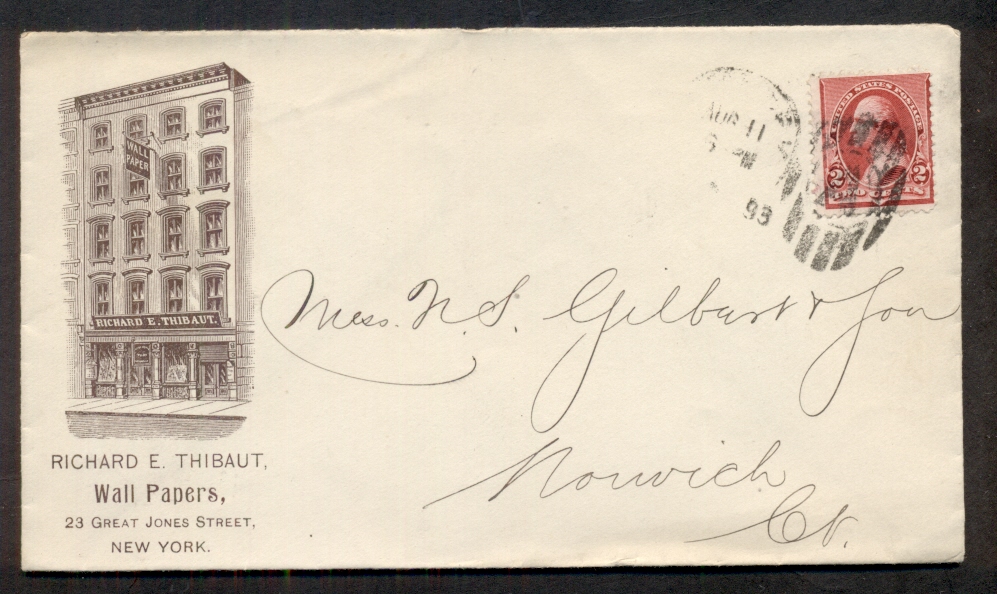 WALL
PAPER
RICHARD E. THIBAUT.
RICHARD E. THIBAUT,
Wall Papers,
23 GREAT JONES STREET,
NEW YORK.
AUG 11
PM
93
UNITED STATES POSTAGE
2 2
Mess. N. S. Gilbert & Son
Norwich
Ct.